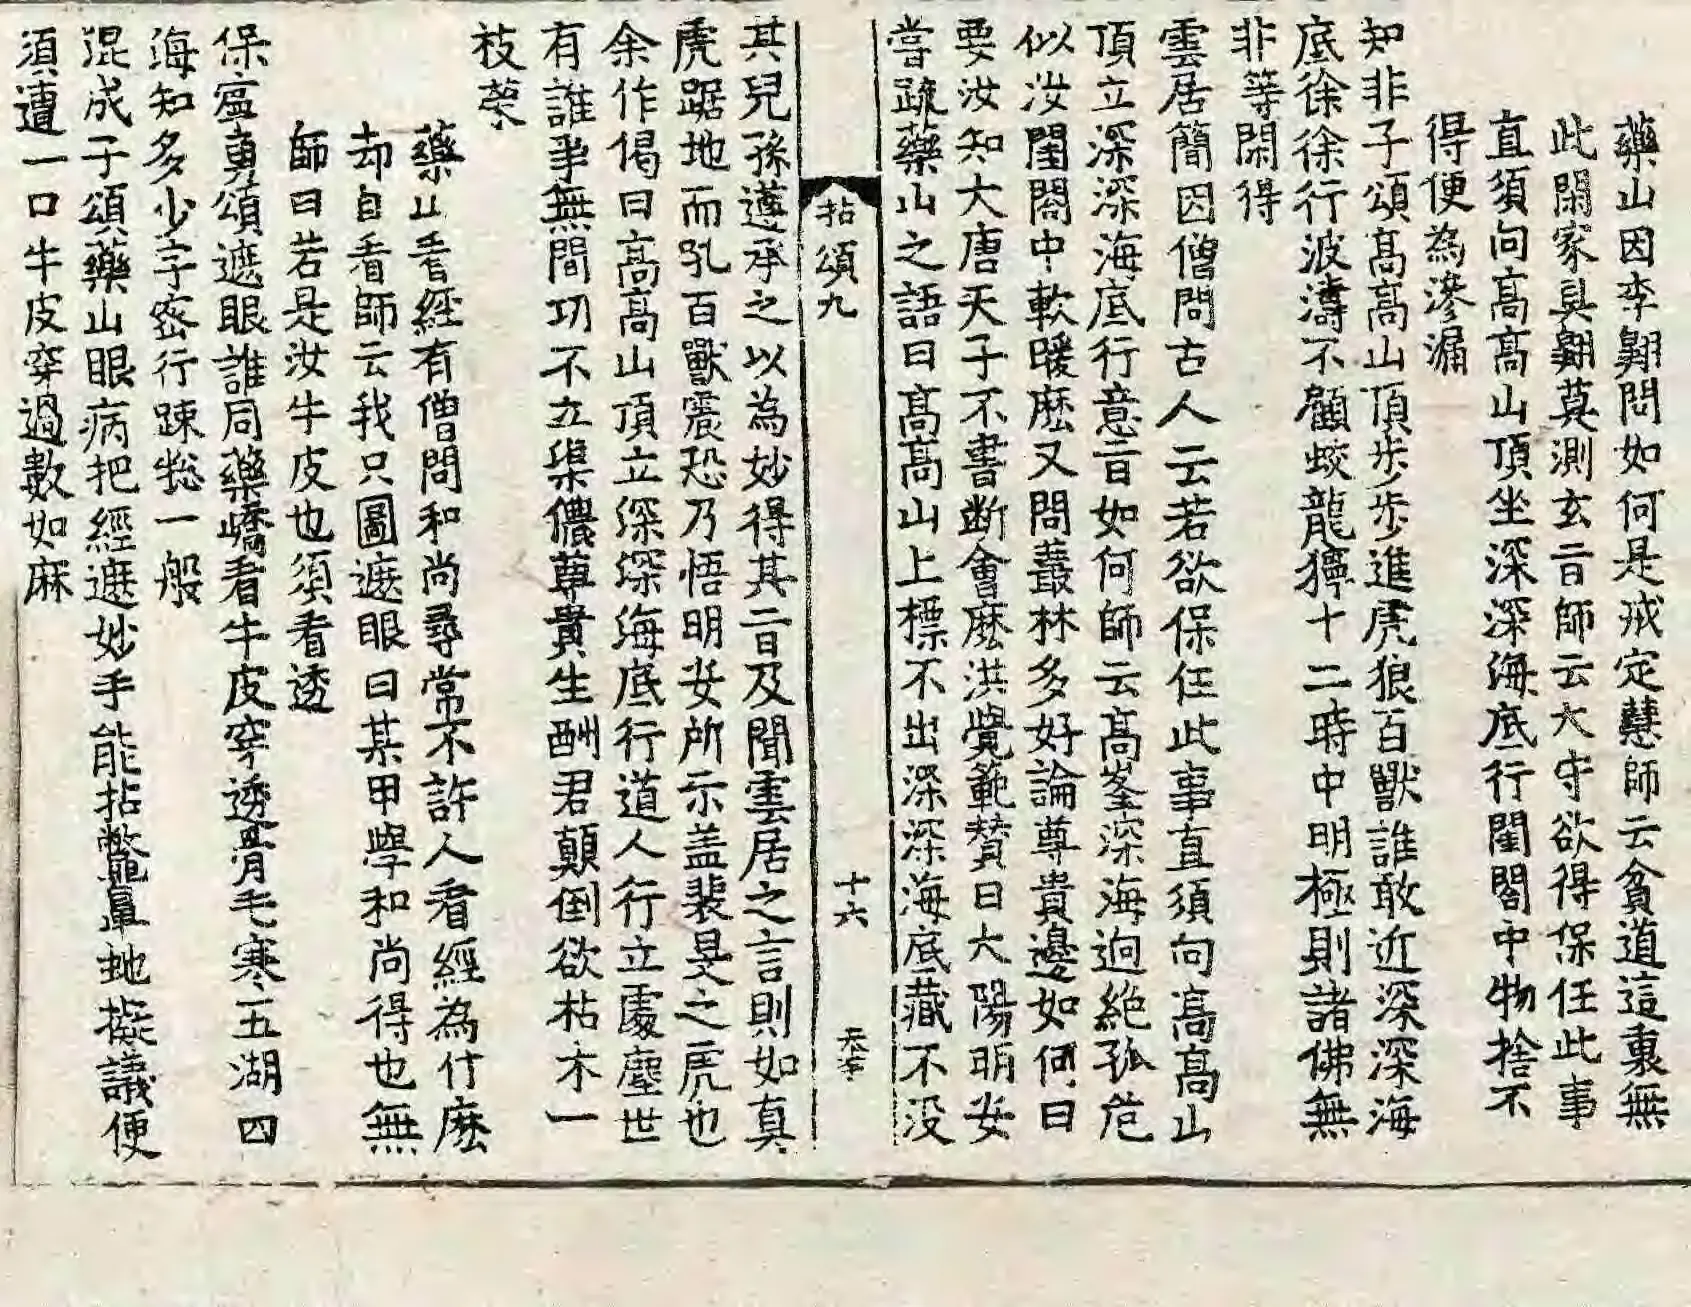 藥山因李翺問如何是戒定慧師云貧道這裏無
此閑家具翺莫測玄旨師云大守欲得保任此事
直須向高高山頂坐深深海底行閨閤中物捨不
得便為滲漏
知非子頌高高山頂步步進虎狼百獸誰敢近深深海
底徐徐行波濤不顧蛟龍獰十二時中明極則諸佛無
非等閑得
雲居簡因僧問古人云若欲保任此事直須向高高山
頂立深深海底行意旨如何師云高峯深海逈絶孤危
似汝閨閤中軟暖麽又問叢林多好論尊貴邊如何曰
要汝知大唐天子不書断會麽洪覺範賛曰大陽明安
嘗䟽藥山之語曰高高山上標不出深深海底藏不没
拈頌九 十六
其兒孫遵承之以為妙得其旨及聞雲居之言則如真
虎踞地而吼百獸震恐乃悟明安所示盖裴旻之虎也
余作偈曰高高山頂立深深海底行道人行立處塵世
有誰爭無間功不立渠儂尊貴生酬君顛倒欲枯木一
枝榮
藥山看經有僧問和尚尋常不許人看經為什麽
却自看師云我只圖遮眼曰某甲學和尚得也無
師曰若是汝牛皮也須看透
保寧勇頌遮眼誰同藥嶠看牛皮穿透骨毛寒五湖四
海知多少字密行踈揔一般
混成子頌藥山眼病把經遮妙手能拈鼈鼻虵擬議便
須遭一口牛皮穿過數如麻